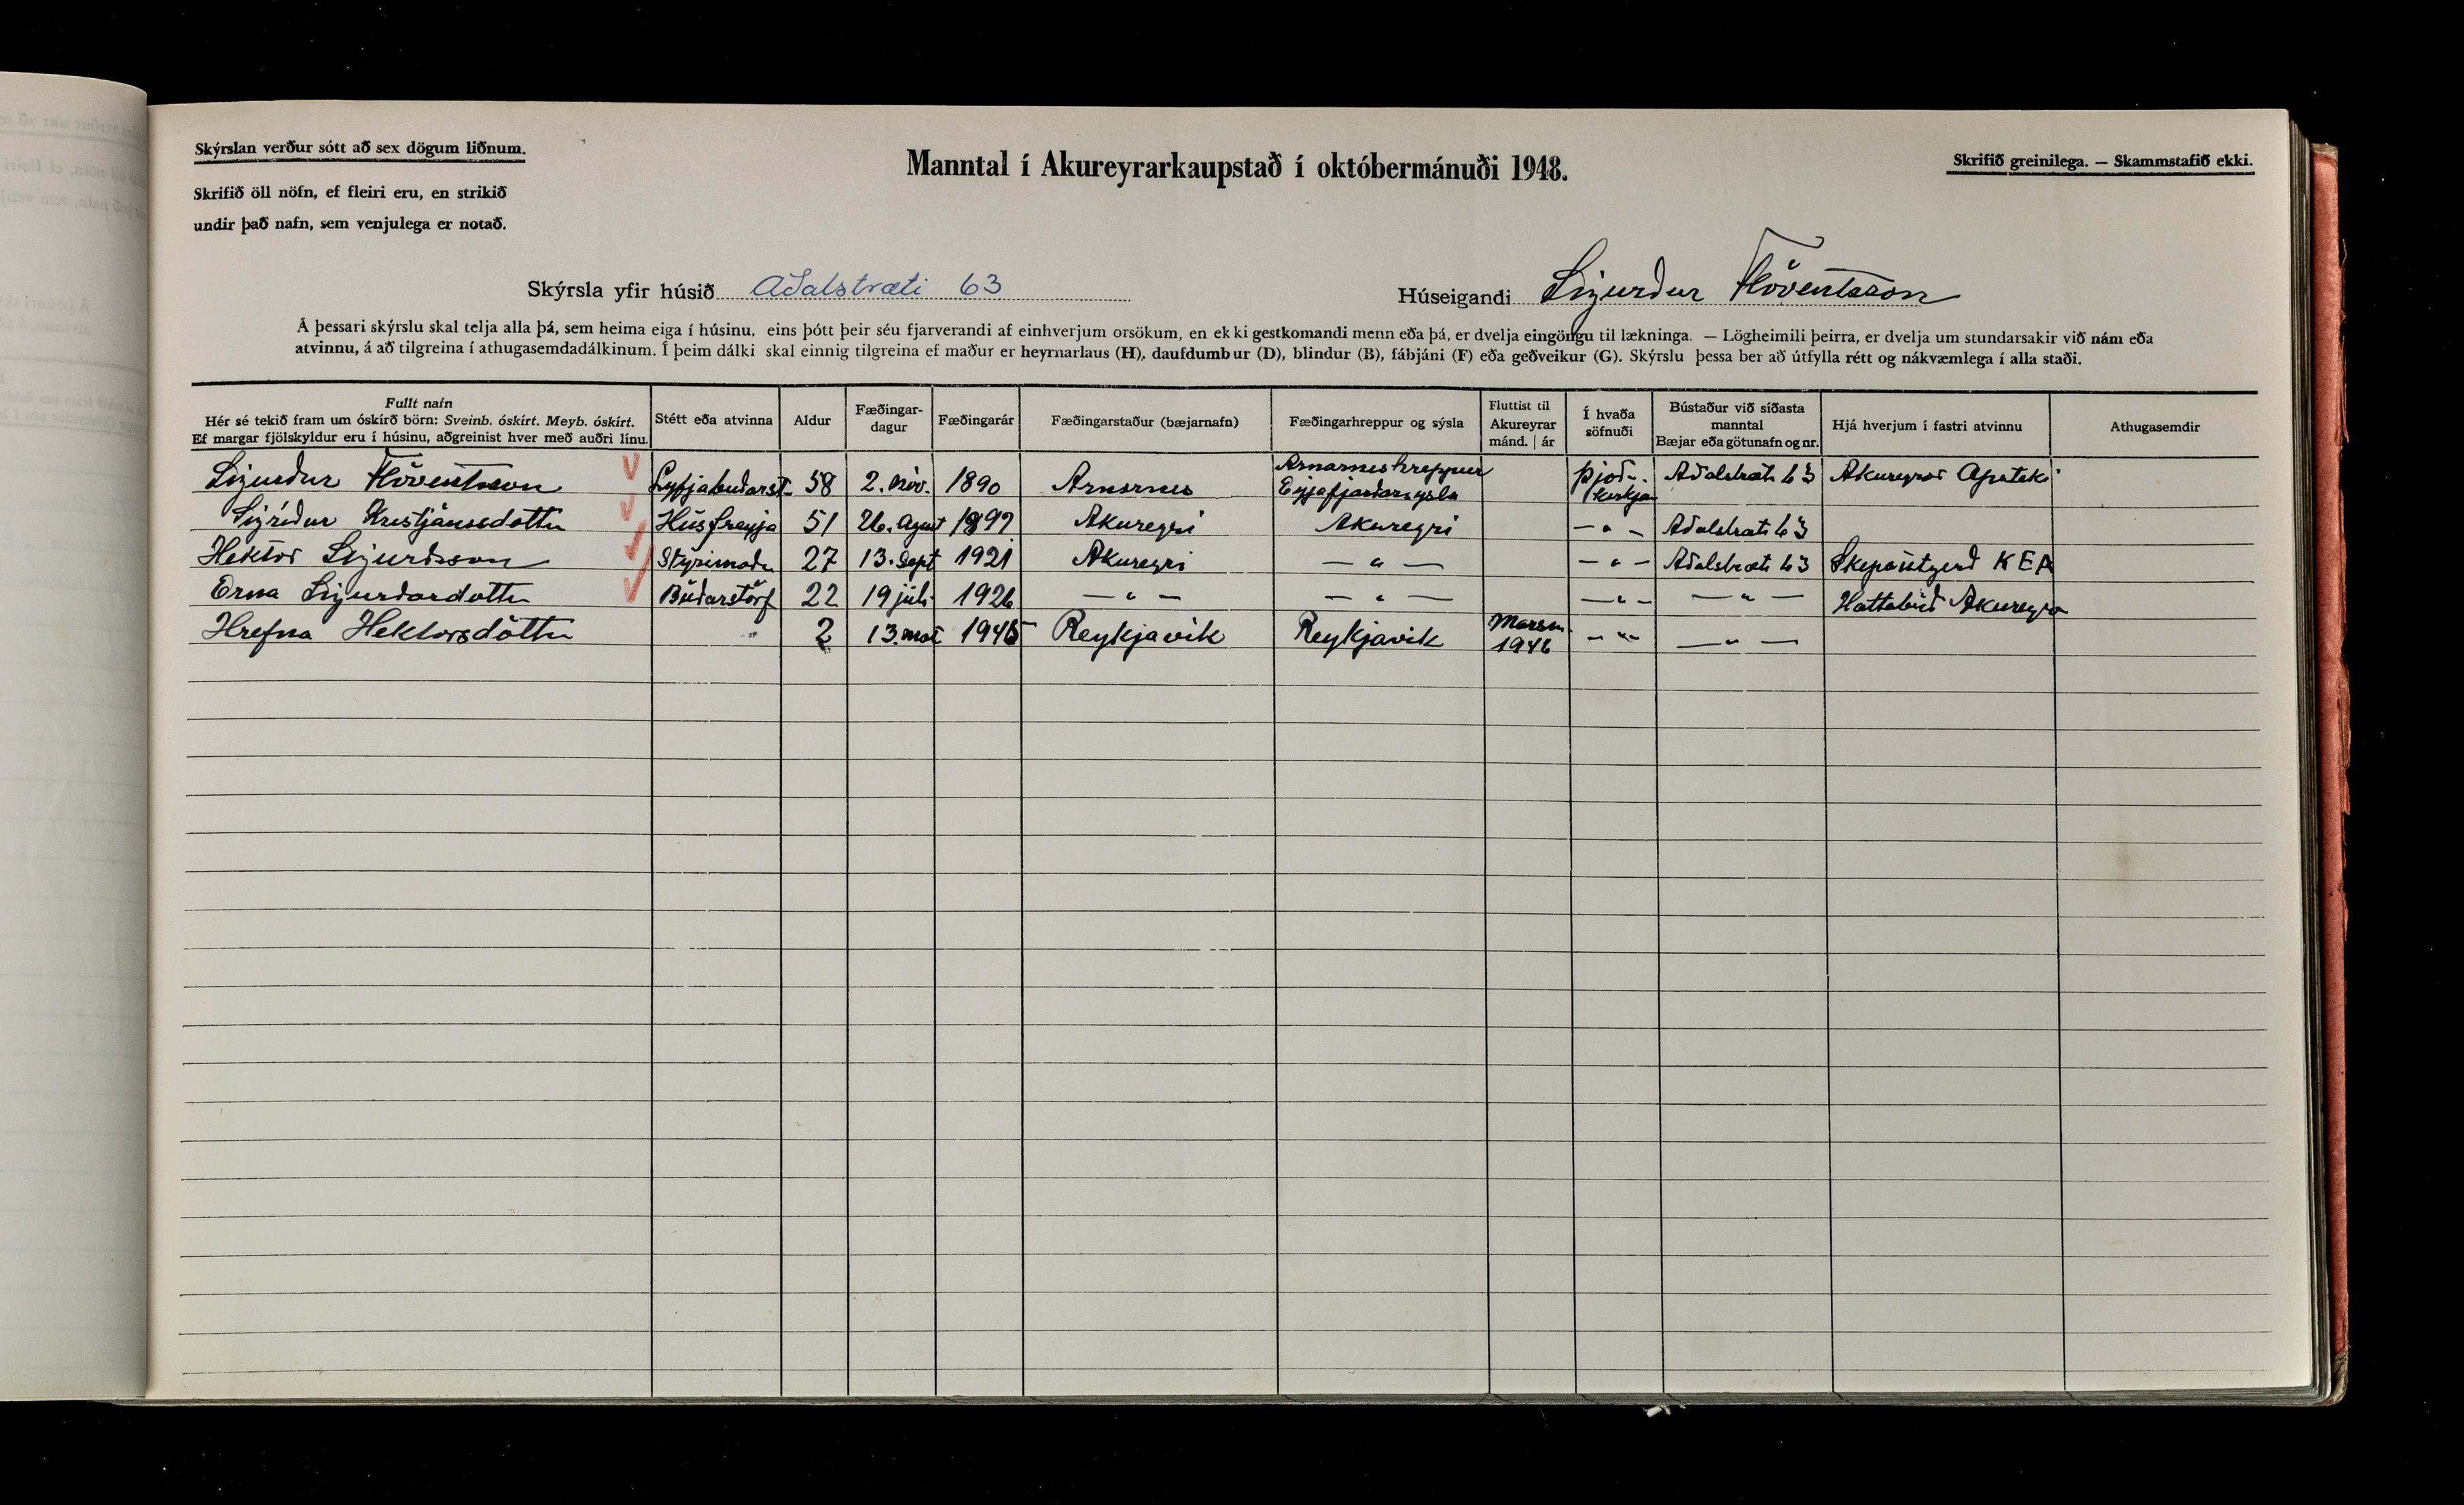 Skýrslan verður sótt að sex dögum liðnum.
Skrifið öll nöfn, ef fleiri eru, en strikið
undir það nafn, sem venjulega er notað.
Manntal í Akureyrarkaupstað í októbermánuði 1948.
Skrifið greinilega. — Skammstafið ekki.
Skýrsla yfir húsið Aðalstræti 63
Húseigandi Sigurður Flóventsson
Á þessari skýrslu skal telja alla þá, sem heima eiga í húsinu, eins þótt þeir séu fjarverandi af einhverjum orsökum, en ekki gestkomandi menn eða þá, er dvelja eingöngu til lækninga. — Lögheimili þeirra, er dvelja um stundarsakir við nám eða
atvinnu, á að tilgreina í athugasemdadálkinum. Í þeim dálki skal einnig tilgreina ef maður er heyrnarlaus (H), daufdumbur (D), blindur (B), fábjáni (F) eða geðveikur (G). Skýrslu þessa ber að útfylla rétt og nákvæmlega í alla staði.
Fullt nafn
Hér sé tekið fram um óskírð börn: Sveinb. óskírt. Meyb. óskírt.
Ef margar fjölskyldur eru í húsinu, aðgreinist hver með auðri línu.
Stétt eða atvinna
Aldur
Fæðingar-
dagur
Fæðingarár
Fæðingarstaður (bæjarnafn)
Fæðingarhreppur og sýsla
Fluttist til
Akureyrar
mánd. | ár
Í hvaða
söfnuði
Bústaður við síðasta
manntal
Bæjar eða götunafn og nr.
Hjá hverjum í fastri atvinnu
Athugasemdir
Sigurður Flóventsson Lyfjabuðarst. 58 2. nóv. 1890 Arnarnes Arnarneshreppur Eyjafjarðarsysla Þjoð-kirkja Aðalstræti 63 Akureyrar Apoteki
Sigríður Kristjánsdóttir Húsfreyja 51 26. Agust 1897 Akureyri Akureyri — " — Aðalstræti 63
Hektor Sigurðsson Stýrimaður 27 13. Sept 1921 Akureyri — " — — " — Aðalstræti 63 Skipaútgerð KEA
Erna Sigurðardóttir Búðarstörf 22 19 júlí 1926 — " — — " — — " — — " — Hattabúð Akureyrar
Hrefna Hektorsdóttir " 2 13. maí 1946 Reykjavik Reykjavik 1946 — " — — " —